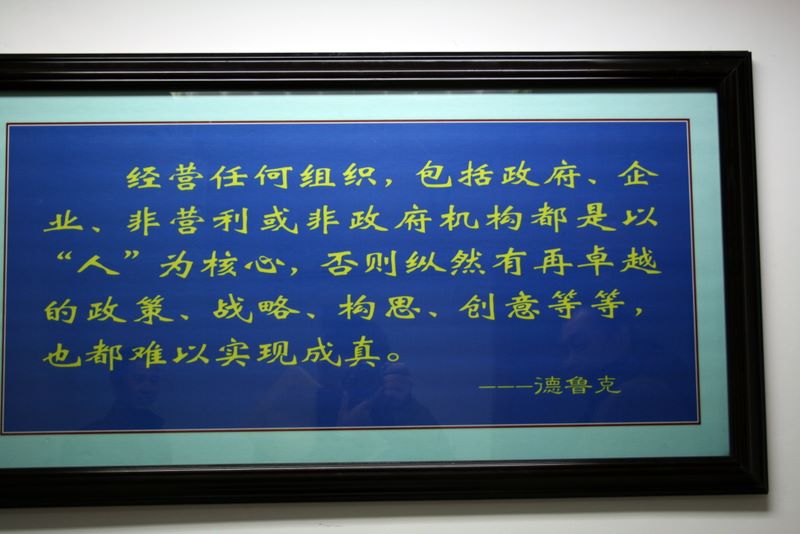 经营任何组织，包括政府、企
业、非营利或非政府机构都是以
“人”为核心，否则纵然有再卓越
的政策、战略、构思、创意等等，
也都难以实现成真。
———德鲁克